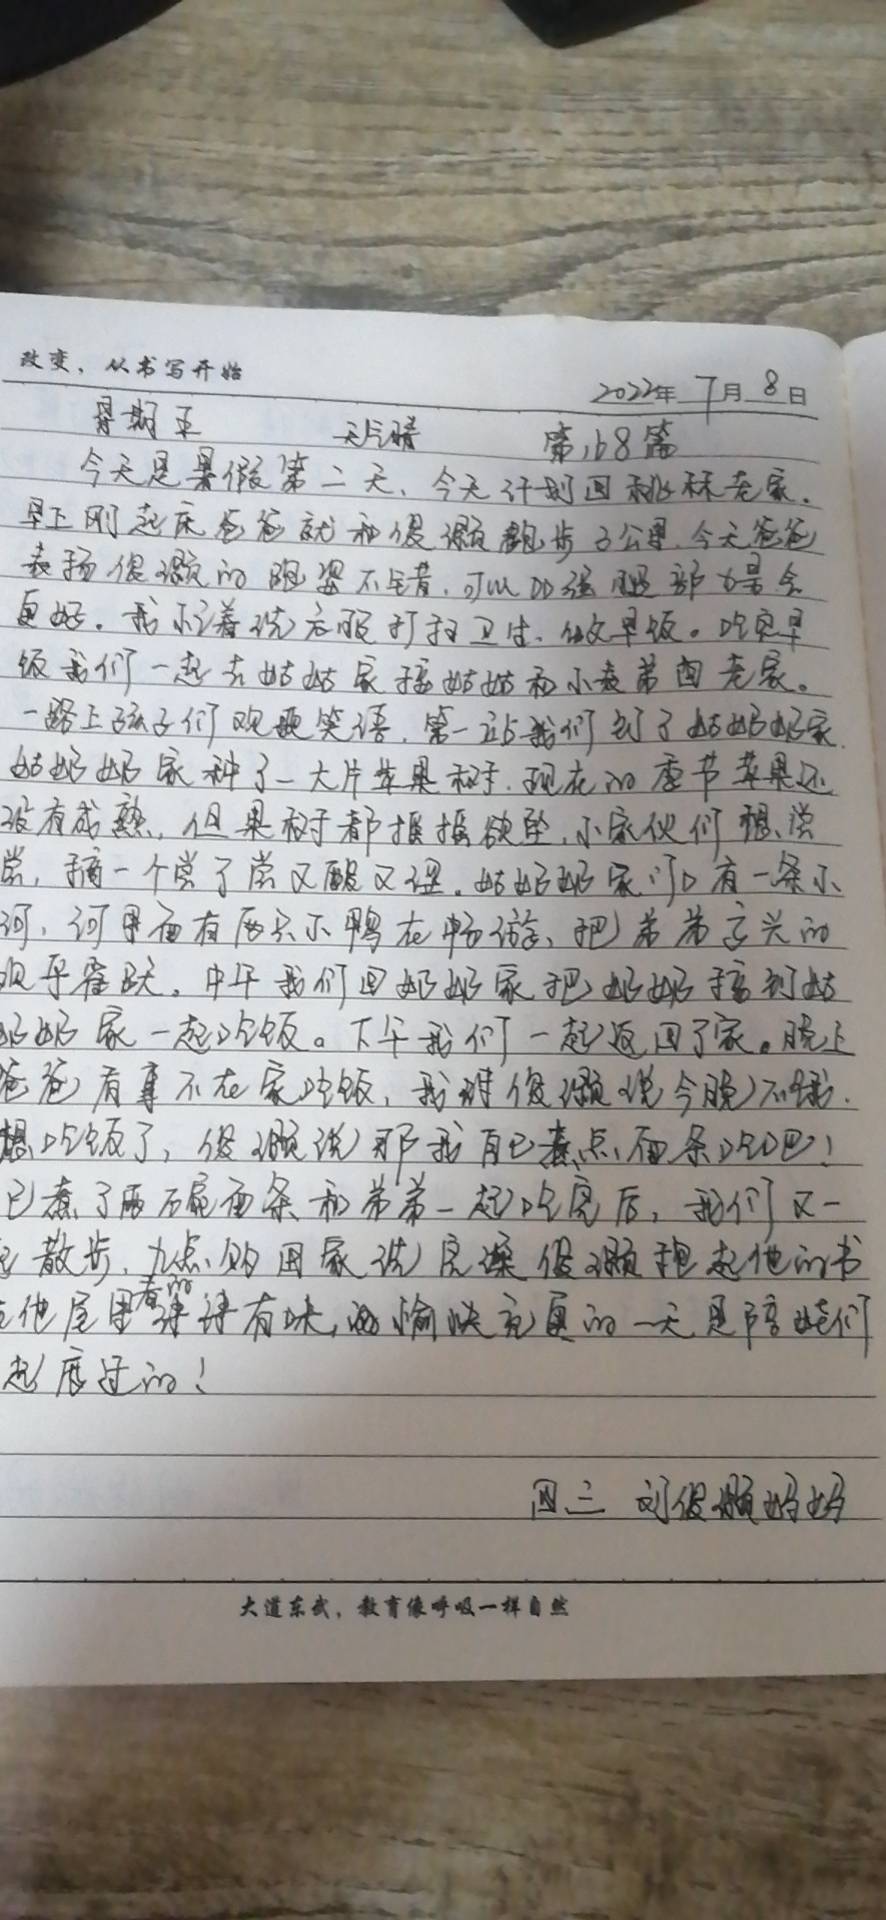 改变，从书写开始
2022年 7月 8日
星期五 天气晴 第168篇
今天是暑假第二天，今天计划回桃林老家。
早上刚起床爸爸就和俊灏跑步3公里，今天爸爸
表扬俊灏的跑姿不错，可以加强腿部力量会
更好。我忙着洗衣服打扫卫生，做早饭。吃完早
饭我们一起去姑姑家接姑姑和小表弟回老家。
一路上孩子们欢声笑语，第一站我们到了姑奶奶家，
姑奶奶家种了一大片苹果树，现在的季节苹果还
没有成熟，但果树都摇摇欲坠，小家伙们想尝
尝，摘一个尝了尝又酸又涩。姑奶奶家门口有一条小
河，河里面有两只小鸭在畅游，把弟弟高兴的
欢乎雀跃。中午我们回奶奶家把奶奶接到姑
奶奶家一起吃饭。下午我们一起返回了家。晚上
爸爸有事不在家吃饭，我对俊灏说今晚不饿，
想吃饭了，俊灏说那我自己煮点面条吃吧！
已煮了两碗面条和弟弟一起吃完后，我们又一
散步，九点多回家洗完澡俊灏抱起他的书
在他屋里看的津津有味，愉快充实的一天是陪娃们
起度过的！
四三 刘俊灏妈妈
大道东武，教育像呼吸一样自然